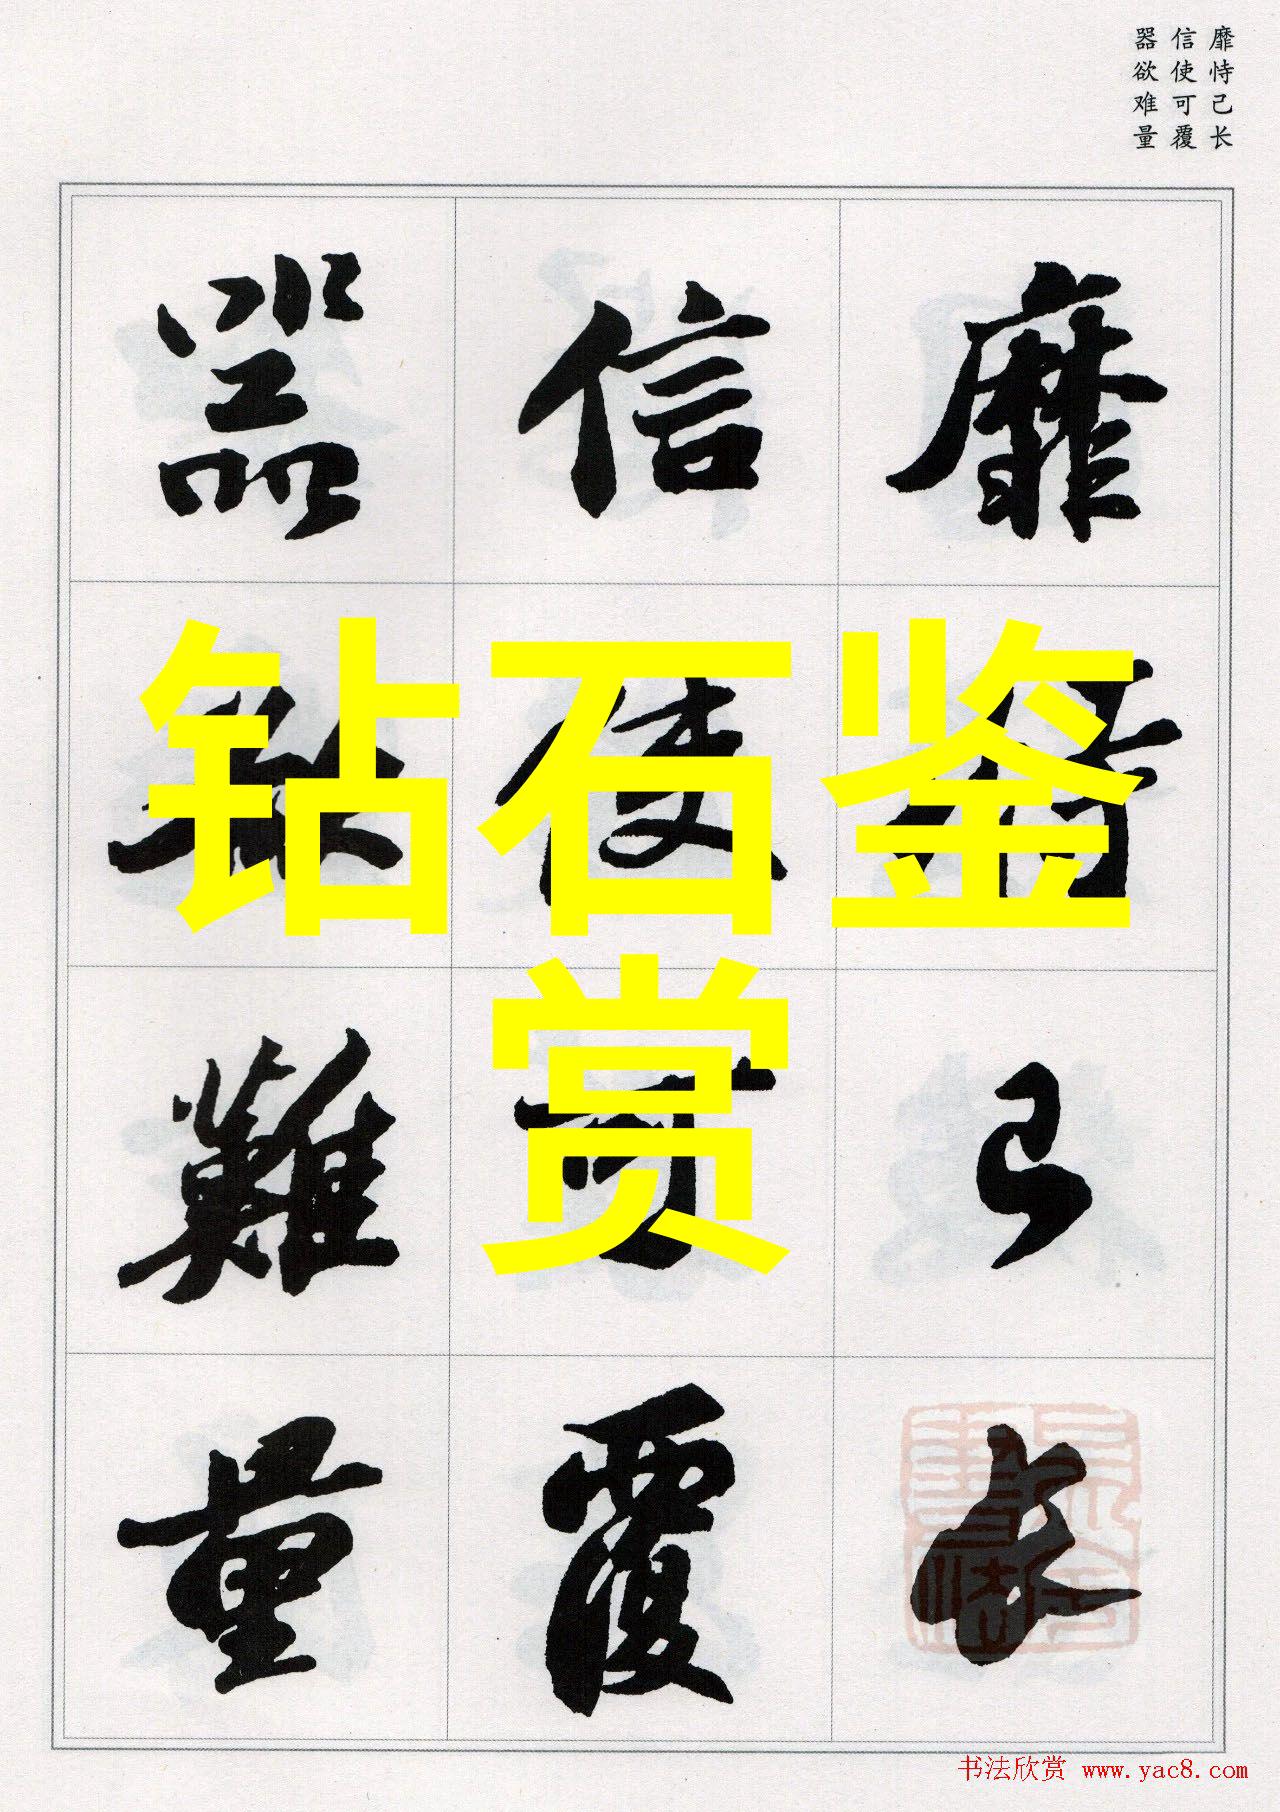 靡恃己长
信使可覆
器欲难量
靡恃己長
信使可覆
器欲難量
钻石鉴
赏
书法欣赏 www.yac8.com